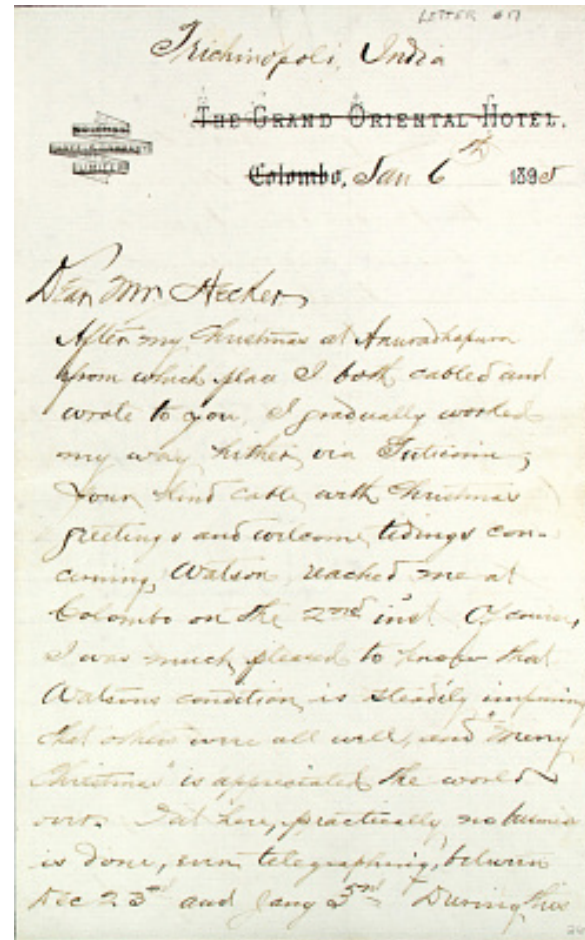 LETTER
Trichinopoli, India
THE GRAND ORIENTAL HOTEL.
COLOMBO
LIMITED
Colombo, Jan 6th 1895
Dear Mr Hecker,
After my Christmas at Anuradhapura
from which place I both cabled and
wrote to you, I gradually worked
my way hither, via Tuticorin,
Your kind cable with Christmas
greetings and welcome tidings con-
cerning, Watson, reached me at
Colombo on the 2nd inst. Of course,
I was much pleased to know that
Watsons condition is steadily improving
that others were all well, and "Merry
Christmas" is appreciated the world
over. But here, practically no business
is done, even telegraphing, between
Dec 23rd and Jany 3rd. During this